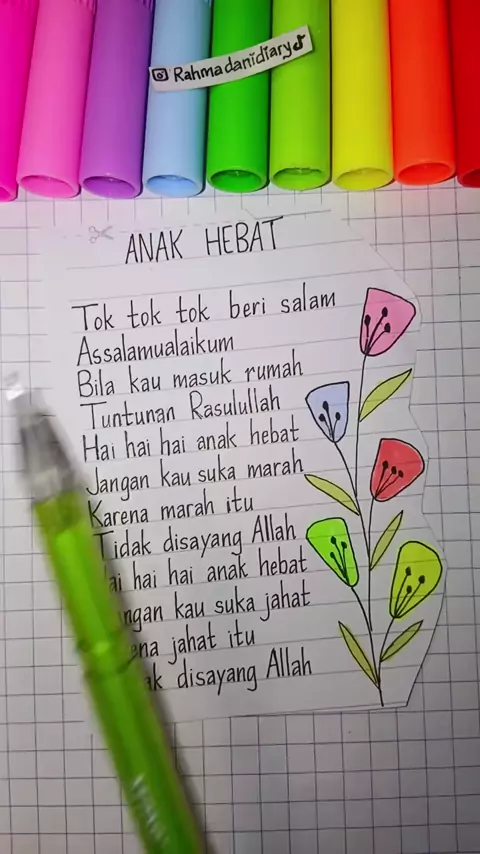 Rahmadanidiary
ANAK HEBAT
Tok tok tok beri salam
Assalamualaikum
Bila kau masuk rumah
Tuntunan Rasulullah
Hai hai hai anak hebat
Jangan kau suka marah
Karena marah itu
Tidak disayang Allah
hai hai anak hebat
kau suka jahat
jahat itu
disayang Allah